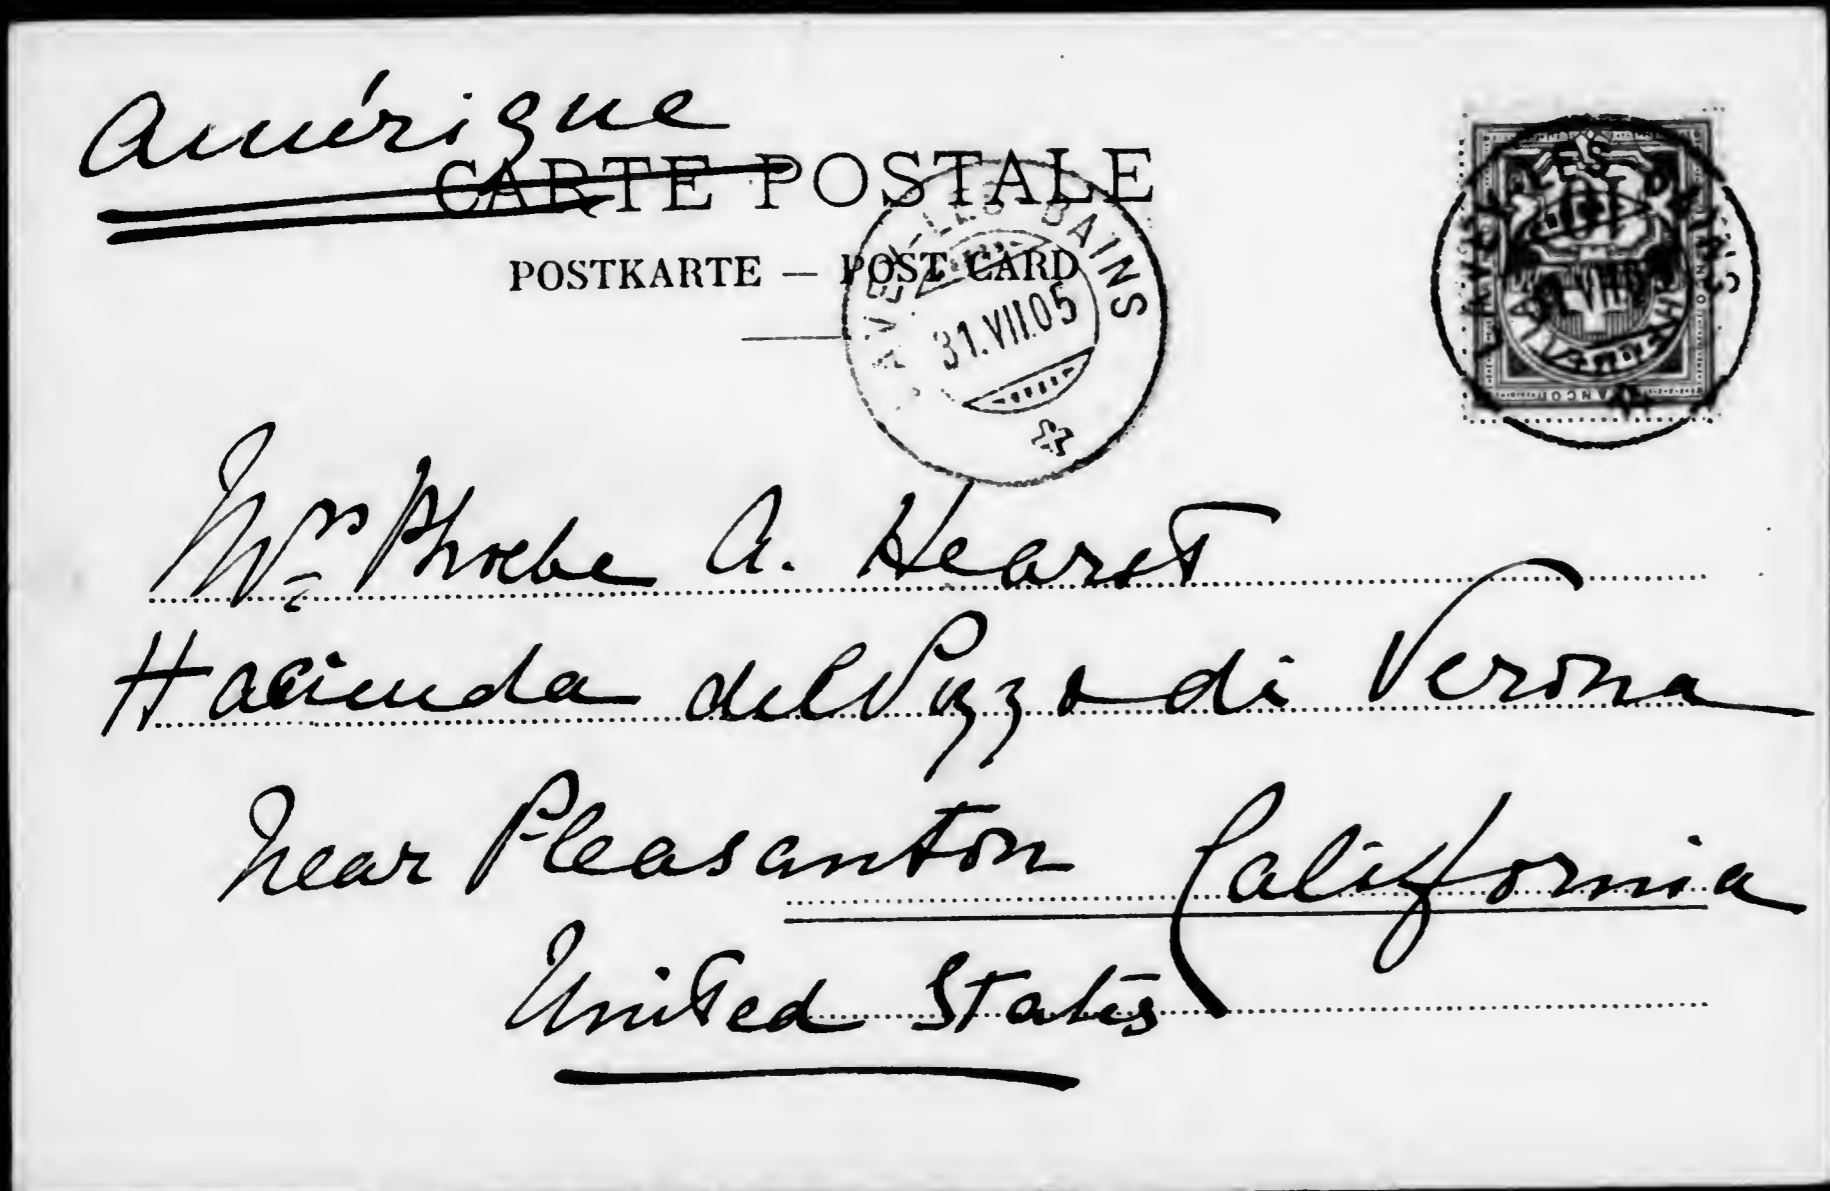 Amérique
CARTE POSTALE
POSTKARTE — POST CARD
LAVEY-LES-BAINS
31.VII.05
Mrs Phoebe A. Hearst
Hacienda del Pozzo di Verona
Near Pleasanton California
United States